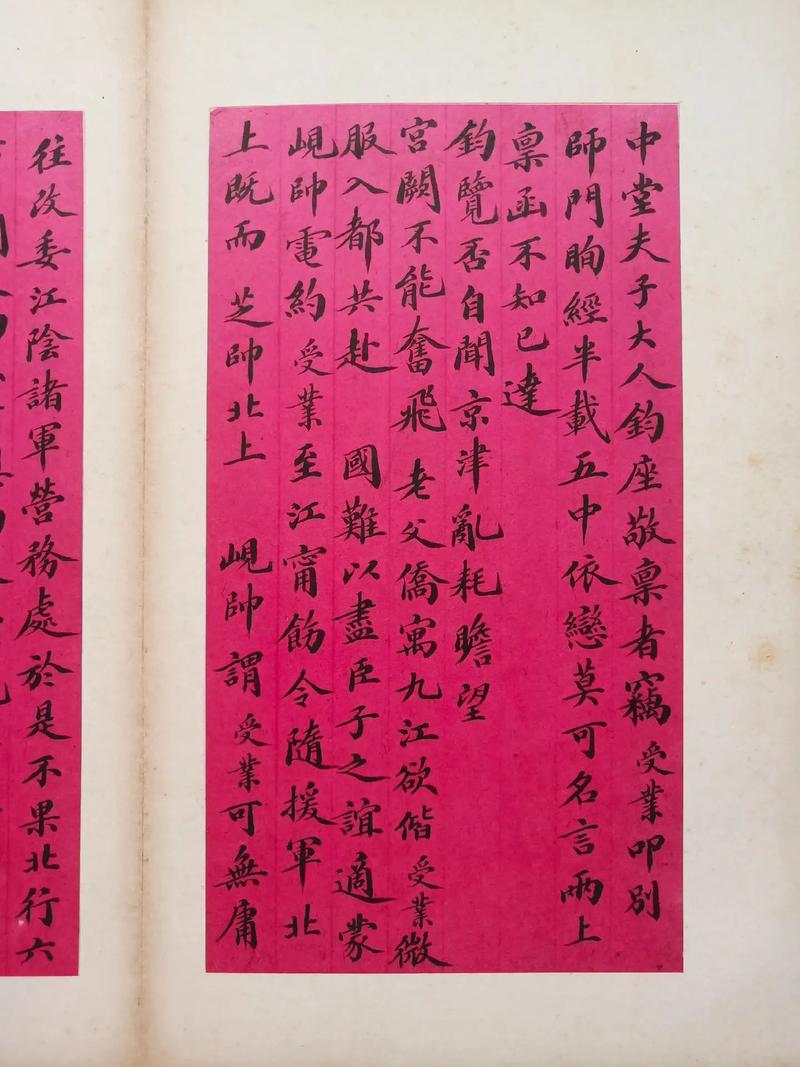 中堂夫子大人鈞座敬禀者竊受業叩別
師門眴經半載五中依戀莫可名言兩上
禀函不知已達
鈞覽否自聞京津亂耗瞻望
宮闕不能奮飛老父僑寓九江欲偕受業微
服入都共赴 國難以盡臣子之誼適蒙
峴帥電約受業至江甯飭令隨援軍北
上既而 芝帥北上 峴帥謂受業可無庸
往改委江陰諸軍營務處於是不果北行六